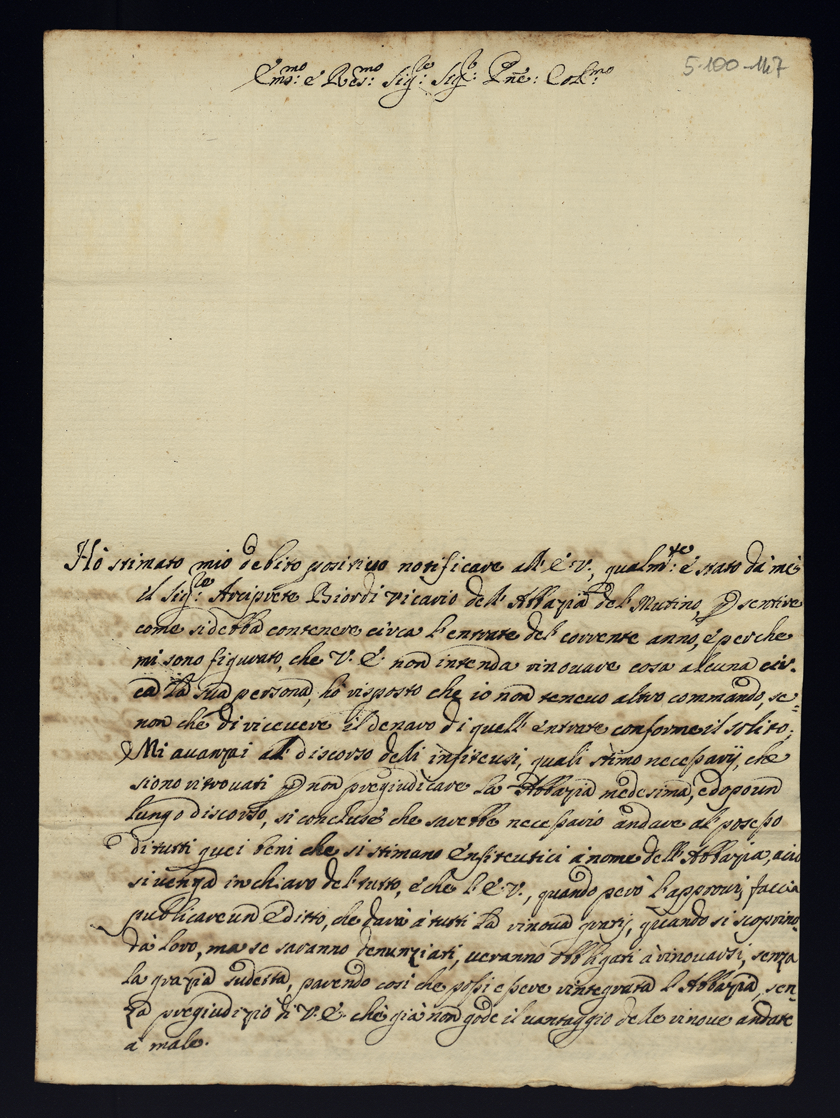 Em̃o: e Reṽmo: Sig:re Sig:r Pñe: Col:mo
5-100-147
Hò stimato mio debito positivo notificare all' E V., qualm:te è stato da mè
il Sig:re Arciprete Biordi Vicario dell' Abbazia del Mutino, p sentire
come si debba contenere circa l'entrate del corrente anno, e perche
mi sono figurato, che V. E. non intenda rinovare cosa alcuna cir-
ca la sua persona, hò risposto che io non tenevo altro commando, se-
non che di ricevere il denaro di quell' entrate conforme il solito;
Mi avanzai al discorso deli infiteusi, quali stimo necessarij, che
siono ritrovati p non pregiudicare la Abbazia medesima, e dopo un
lungo discorso, si concluse che sarebbe necessario andare al possesso
di tutti quei beni che si stimano enfiteutici à nome dell' Abbazia, acciò
si venga in chiaro del tutto, e che l' E. V., quando però l'approvi, faccia
publicare un Editto, che darà à tutti la rinova gratis, quando si scoprino
da loro, ma se saranno denunziati, veranno obbligati à rinovarsi, senza
la grazia sudetta, parendo così che possi essere rintegrata l' Abbazia, sen-
za pregiudizio di V. E. che già non gode il vantaggio dele rinove andate
a male.